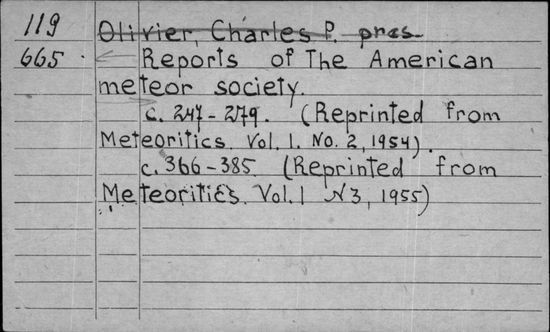 119
Olivier, Charles P. pres.
665
Reports of The American
meteor society.
c. 247-279. (Reprinted from
Meteoritics. Vol. 1. No. 2, 1954).
c. 366-385 (Reprinted from
Meteoritics. Vol. 1 N3, 1955)